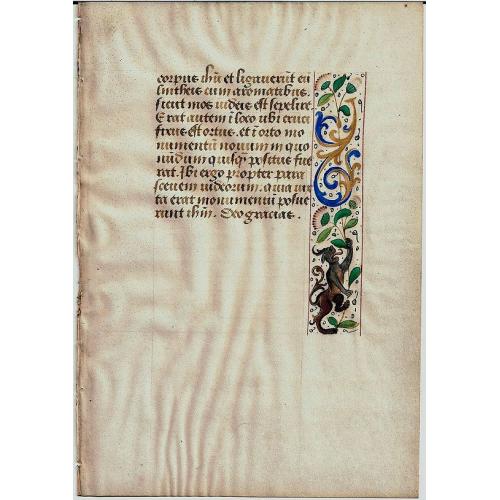 corpus ihu et ligaverunt eu
lintheis cum aromatibus.
sicut mos iudeis est sepelire
Erat autem i loco ubi cruci
fixus est ortus. et i orto mo
numentu novum in quo
nudum quisq positus fue
rat. Ibi ergo propter para
scevem iudeorum. quia iux
ta erat monumentu posue
runt ihm. Deo gracias.